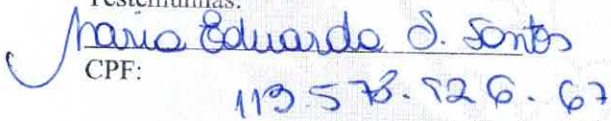 Testemunhas:
Maria Eduarda S. Santos
CPF:
119.573.526.67